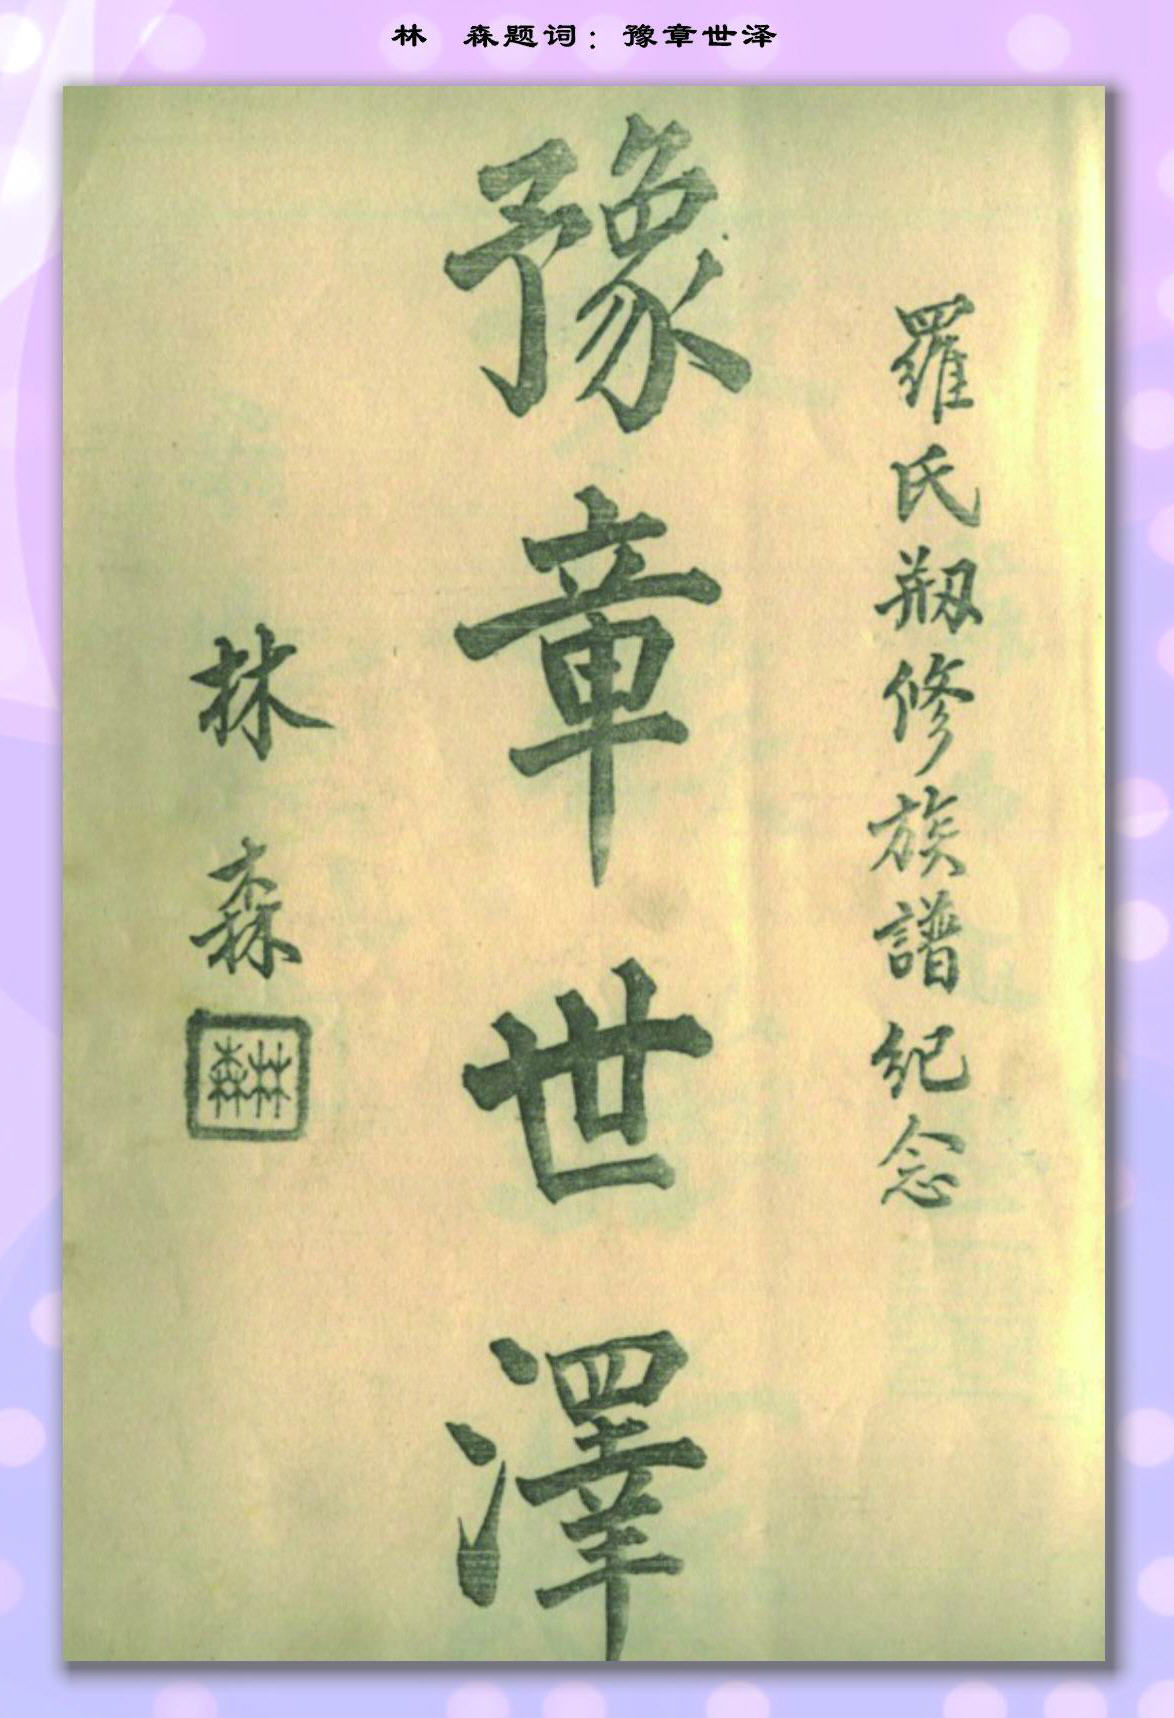 林 森题词：豫章世泽
羅氏剏修族譜纪念
豫章世澤
林森
林森